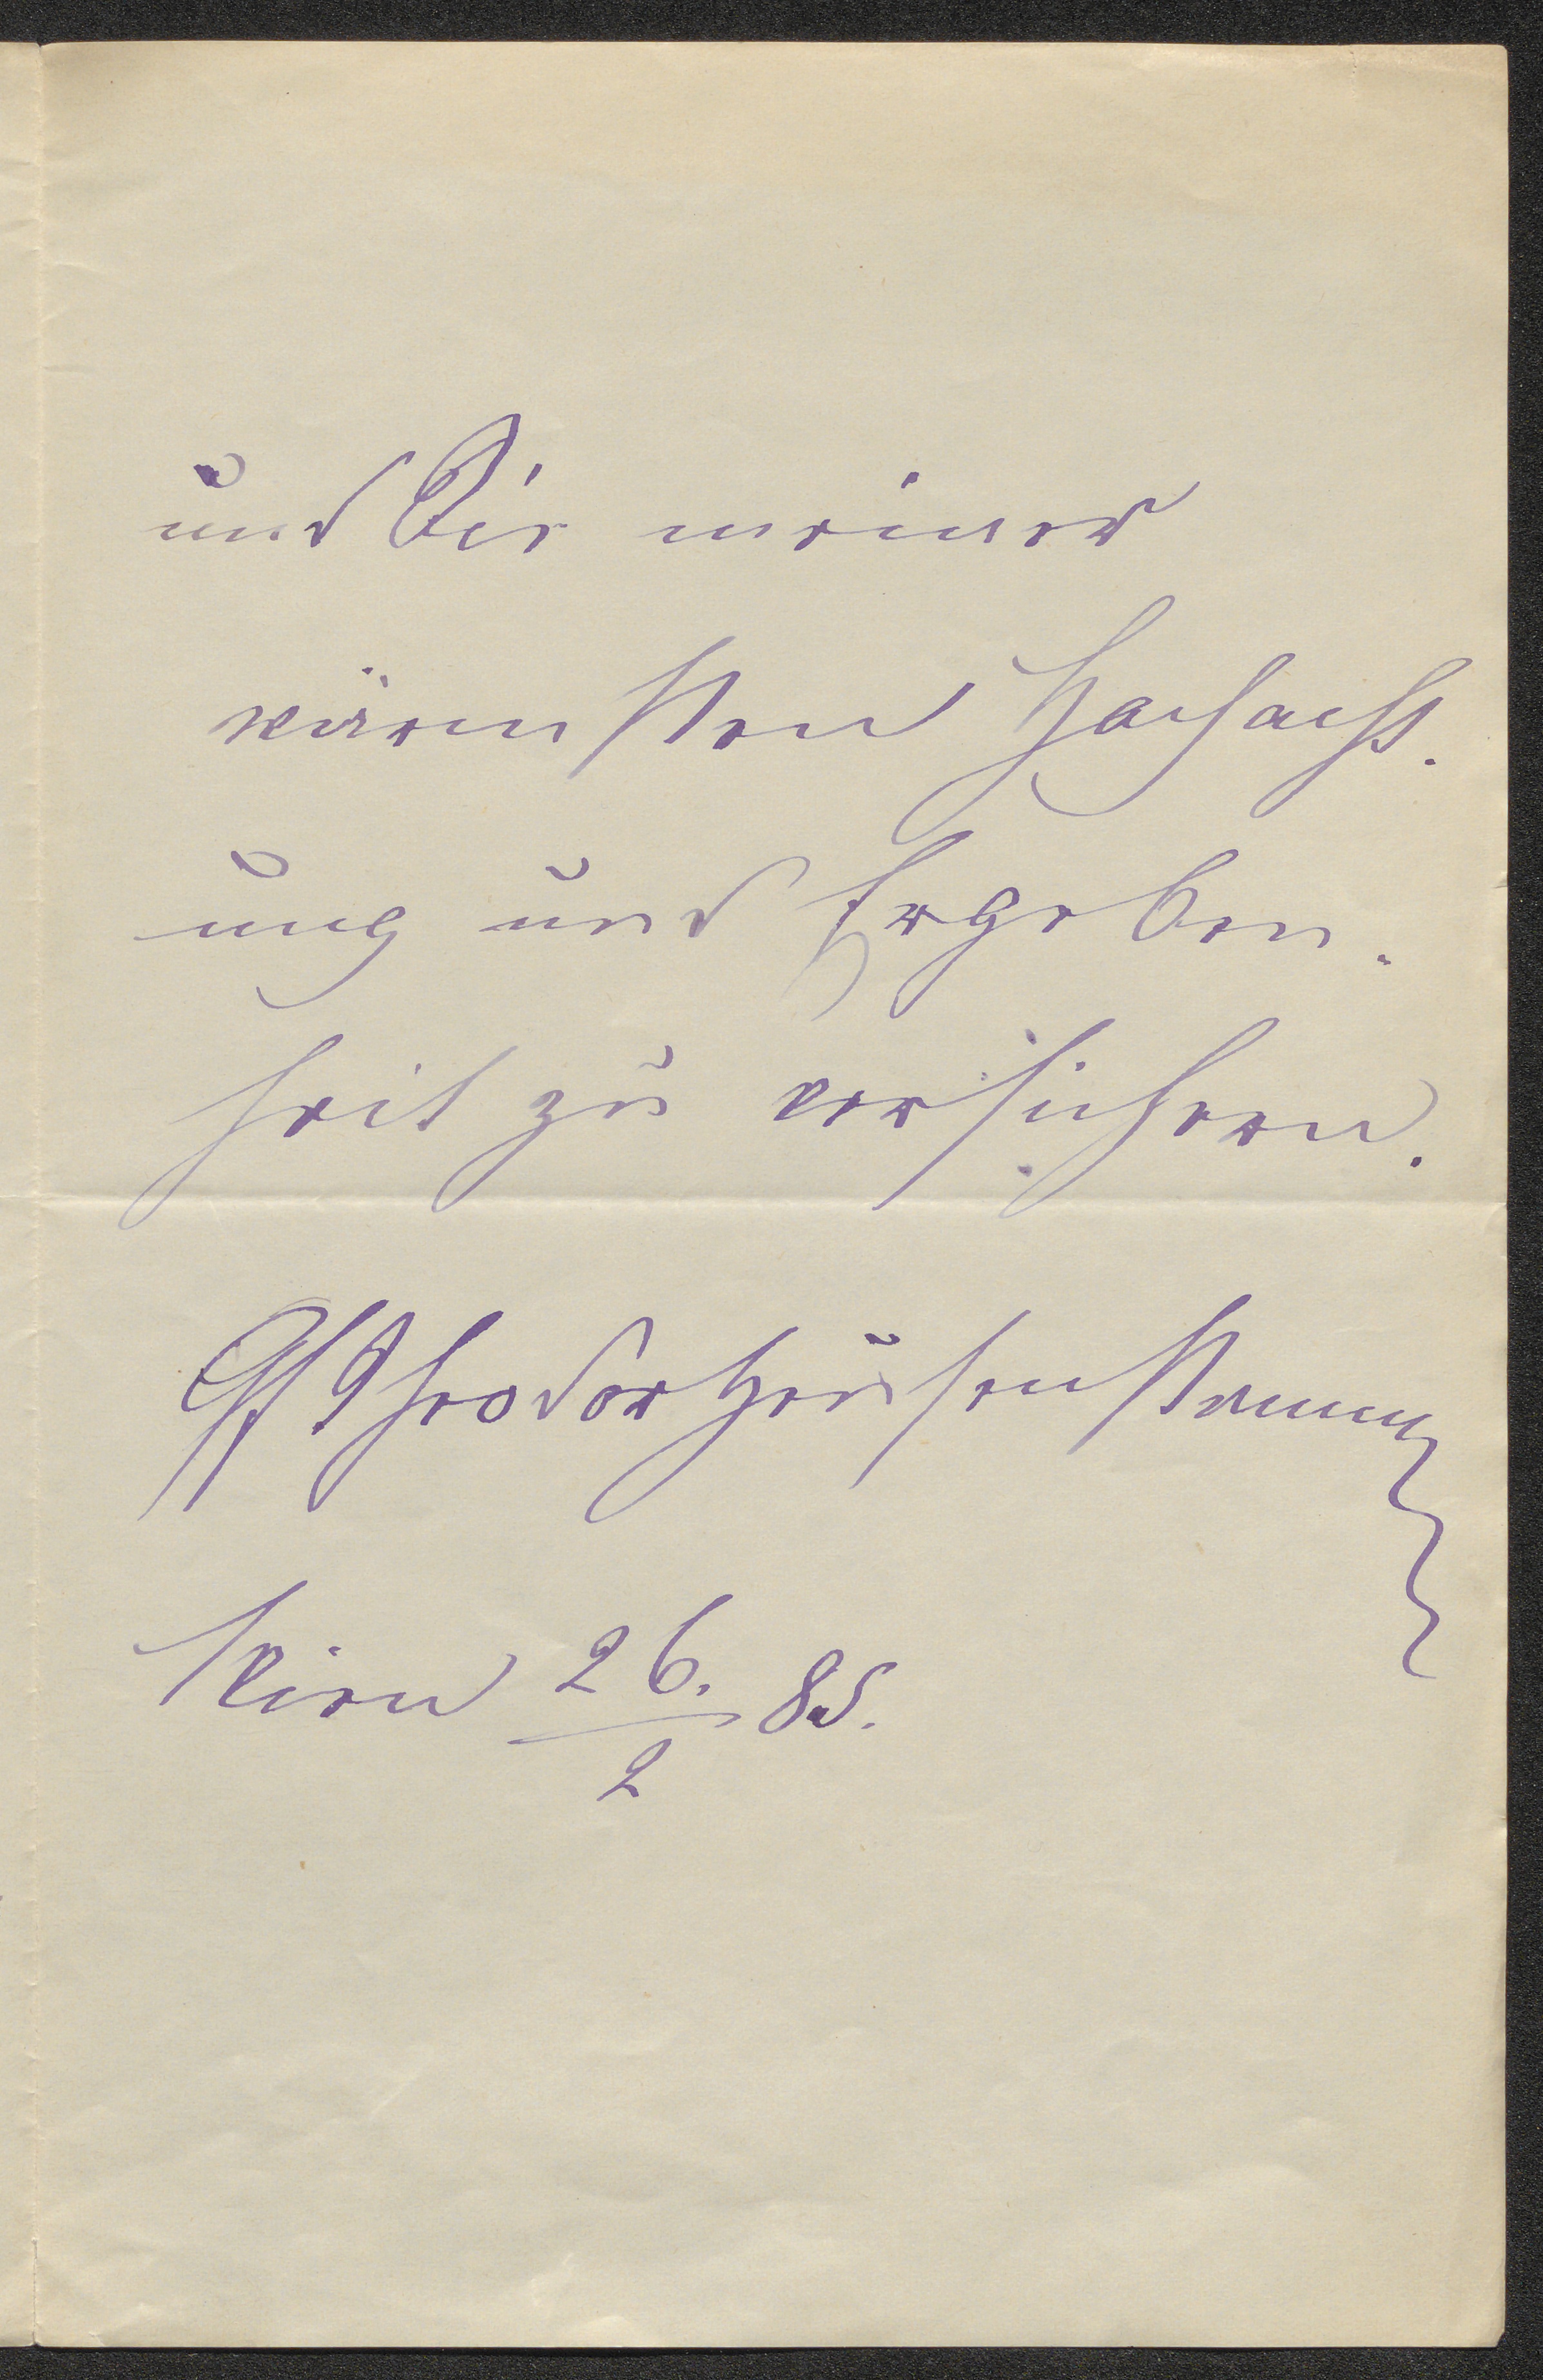 und Sie meiner
wärmsten Hochacht-
ung und Ergeben-
heit zu versichern.
Theodor Heusenstamm
Wien 26./2 85.